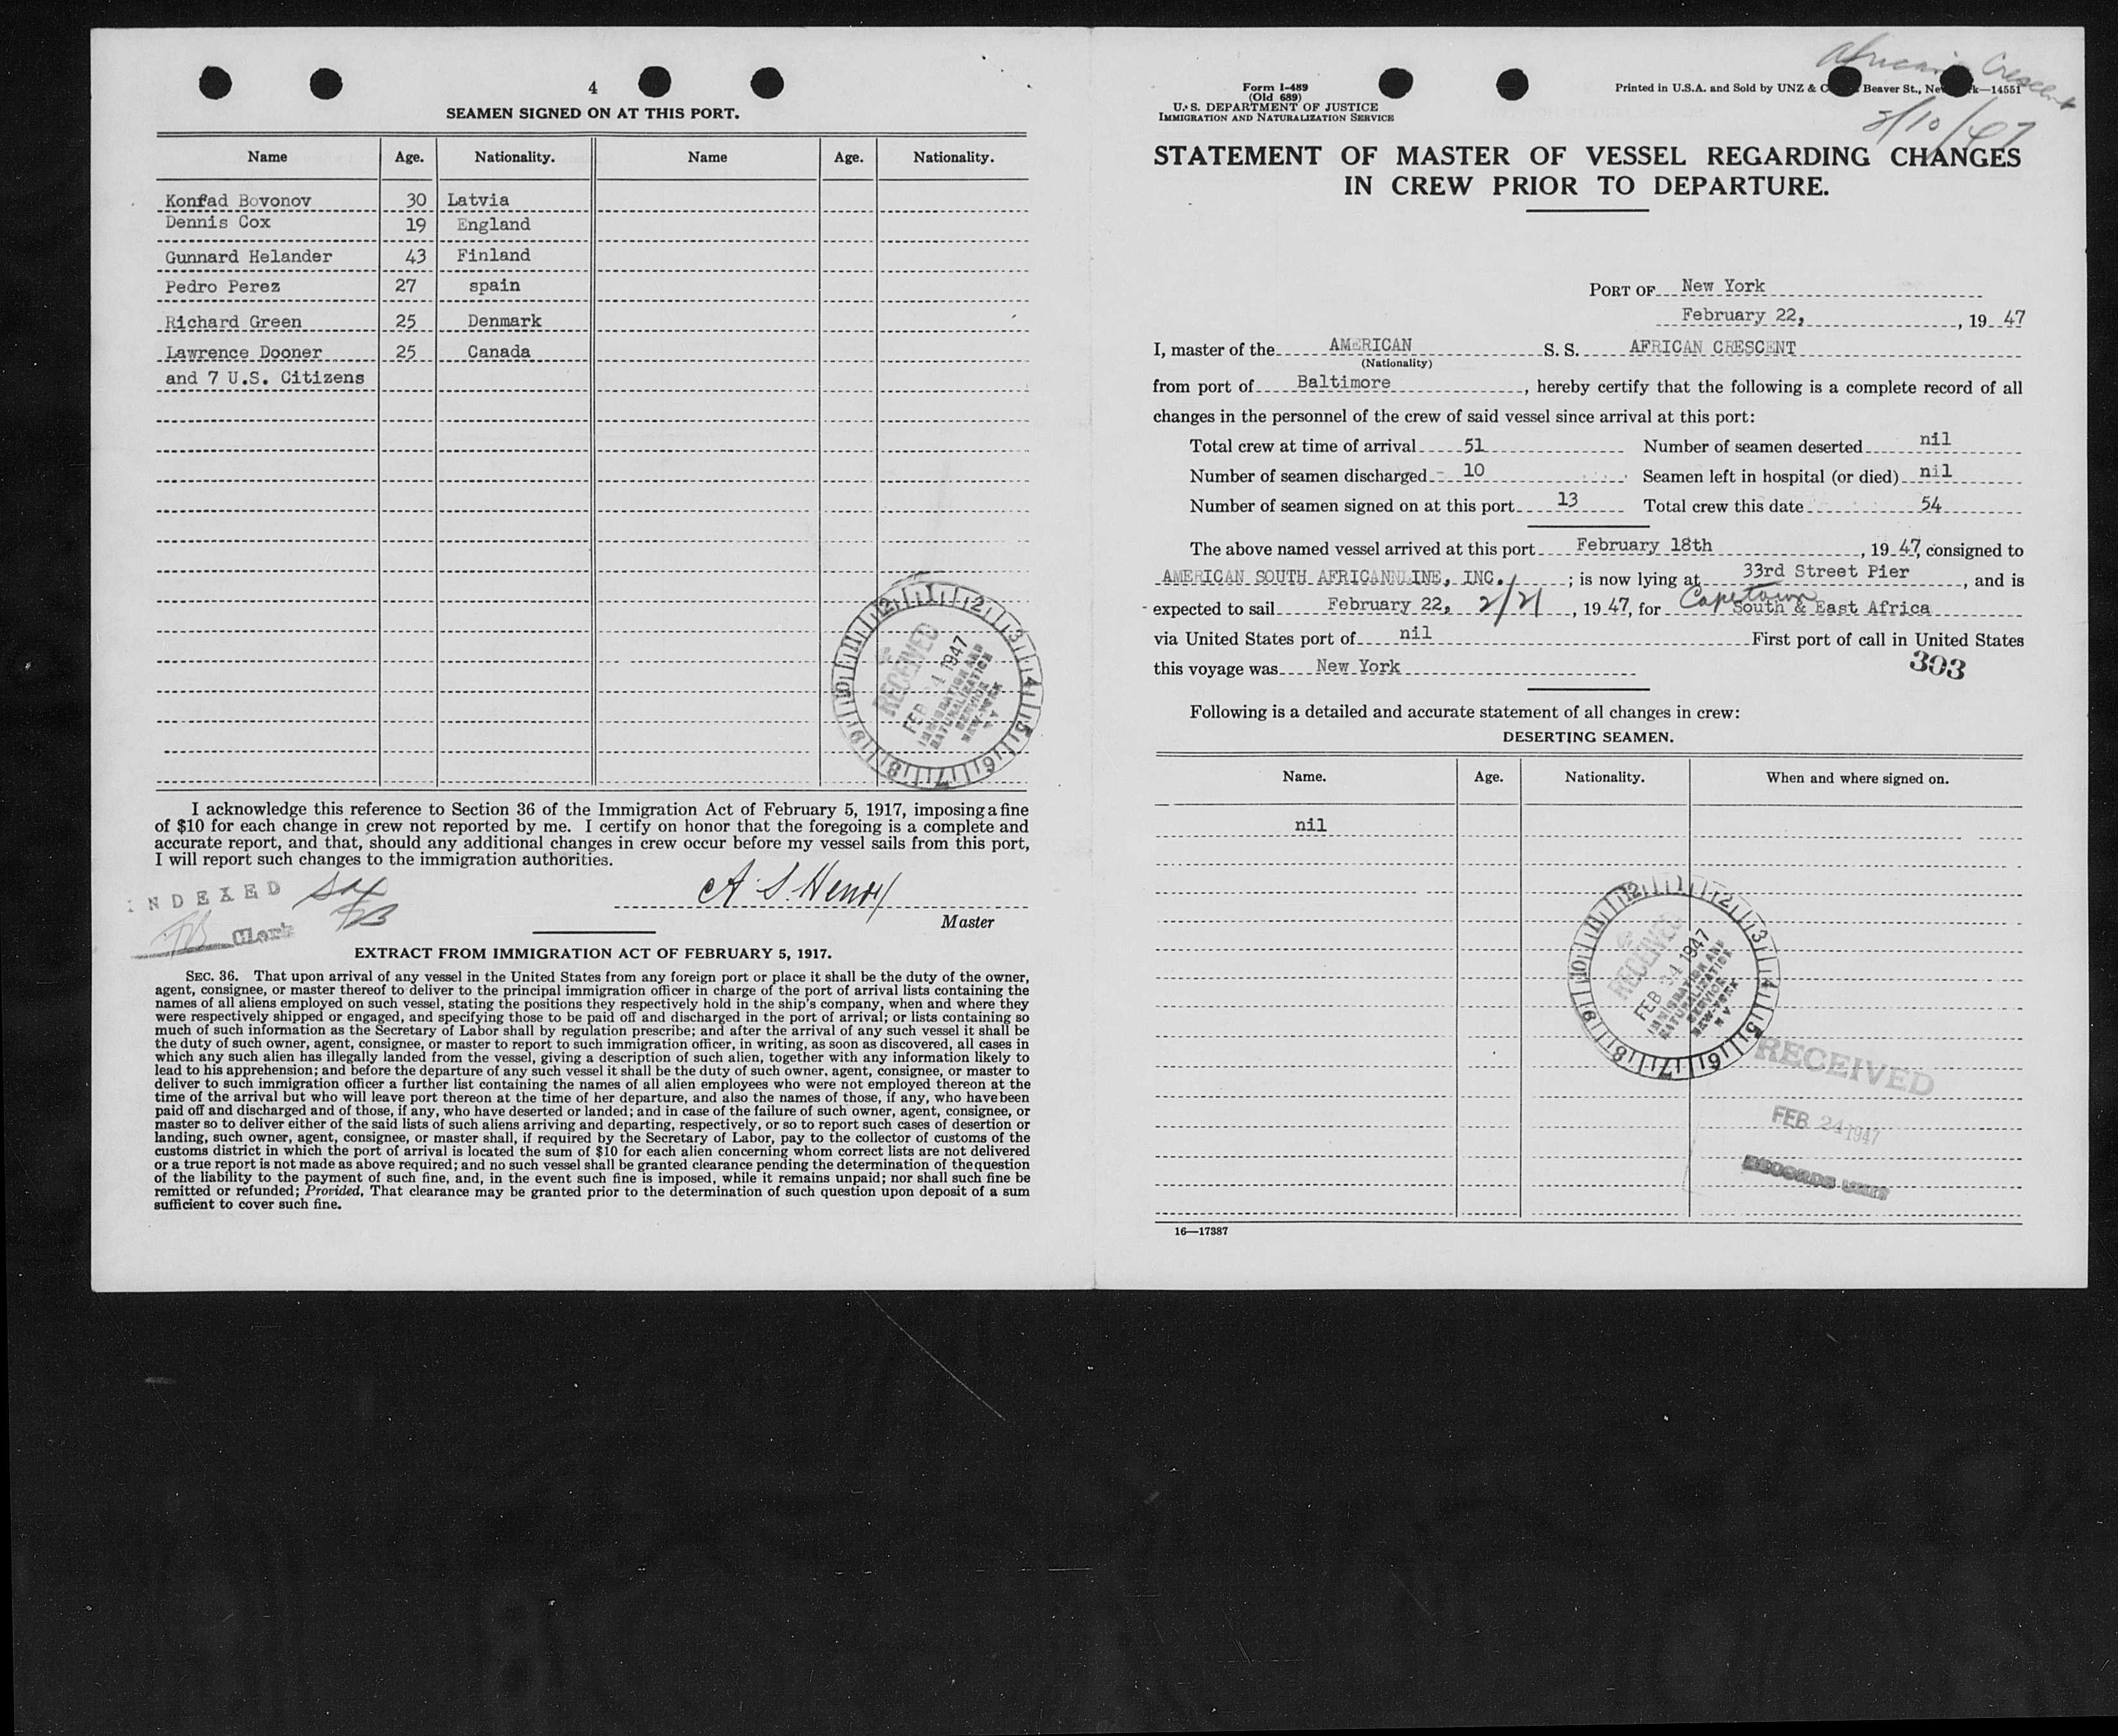 4
SEAMEN SIGNED ON AT THIS PORT.
Name Age. Nationality. Name Age. Nationality.
Konrad Bovonov 30 Latvia
Dennis Cox 19 England
Gunnard Helander 43 Finland
Pedro Perez 27 spain
Richard Green 25 Denmark
Lawrence Dooner 25 Canada
and 7 U.S. Citizens
RECEIVED
FEB 24 1947
IMMIGRATION AND
NATURALIZATION
SERVICE
NEW-YORK
N Y
I acknowledge this reference to Section 36 of the Immigration Act of February 5, 1917, imposing a fine
of $10 for each change in crew not reported by me. I certify on honor that the foregoing is a complete and
accurate report, and that, should any additional changes in crew occur before my vessel sails from this port,
I will report such changes to the immigration authorities.
INDEXED
A. S. Henry
Master
Clerk
EXTRACT FROM IMMIGRATION ACT OF FEBRUARY 5, 1917.
SEC. 36. That upon arrival of any vessel in the United States from any foreign port or place it shall be the duty of the owner,
agent, consignee, or master thereof to deliver to the principal immigration officer in charge of the port of arrival lists containing the
names of all aliens employed on such vessel, stating the positions they respectively hold in the ship's company, when and where they
were respectively shipped or engaged, and specifying those to be paid off and discharged in the port of arrival; or lists containing so
much of such information as the Secretary of Labor shall by regulation prescribe; and after the arrival of any such vessel it shall be
the duty of such owner, agent, consignee, or master to report to such immigration officer, in writing, as soon as discovered, all cases in
which any such alien has illegally landed from the vessel, giving a description of such alien, together with any information likely to
lead to his apprehension; and before the departure of any such vessel it shall be the duty of such owner, agent, consignee, or master to
deliver to such immigration officer a further list containing the names of all alien employees who were not employed thereon at the
time of the arrival but who will leave port thereon at the time of her departure, and also the names of those, if any, who have been
paid off and discharged and of those, if any, who have deserted or landed; and in case of the failure of such owner, agent, consignee, or
master so to deliver either of the said lists of such aliens arriving and departing, respectively, or so to report such cases of desertion or
landing, such owner, agent, consignee, or master shall, if required by the Secretary of Labor, pay to the collector of customs of the
customs district in which the port of arrival is located the sum of $10 for each alien concerning whom correct lists are not delivered
or a true report is not made as above required; and no such vessel shall be granted clearance pending the determination of the question
of the liability to the payment of such fine, and, in the event such fine is imposed, while it remains unpaid; nor shall such fine be
remitted or refunded; Provided, That clearance may be granted prior to the determination of such question upon deposit of a sum
sufficient to cover such fine.
African Crescent
Form I-489
(Old 689)
U. S. DEPARTMENT OF JUSTICE
IMMIGRATION AND NATURALIZATION SERVICE
Printed in U.S.A. and Sold by UNZ & Beaver St., 14551
/10/47
STATEMENT OF MASTER OF VESSEL REGARDING CHANGES
IN CREW PRIOR TO DEPARTURE.
PORT OF New York
February 22, , 19 47
I, master of the AMERICAN S. S. AFRICAN CRESCENT
(Nationality)
from port of Baltimore , hereby certify that the following is a complete record of all
changes in the personnel of the crew of said vessel since arrival at this port:
Total crew at time of arrival 51 Number of seamen deserted nil
Number of seamen discharged - 10 Seamen left in hospital (or died) nil
Number of seamen signed on at this port 13 Total crew this date 54
The above named vessel arrived at this port February 18th , 19 47, consigned to
AMERICAN SOUTH AFRICANNLINE, INC. ; is now lying at 33rd Street Pier , and is
expected to sail February 22, 2/21 , 19 47, for Capetown South & East Africa
via United States port of nil First port of call in United States
this voyage was New York 303
Following is a detailed and accurate statement of all changes in crew:
DESERTING SEAMEN.
Name. Age. Nationality. When and where signed on.
nil
RECEIVED
FEB 24 1947
IMMIGRATION AND
NATURALIZATION
SERVICE
NEW-YORK
N Y
RECEIVED
FEB 24 1947
RECORDS UNIT
16—17387